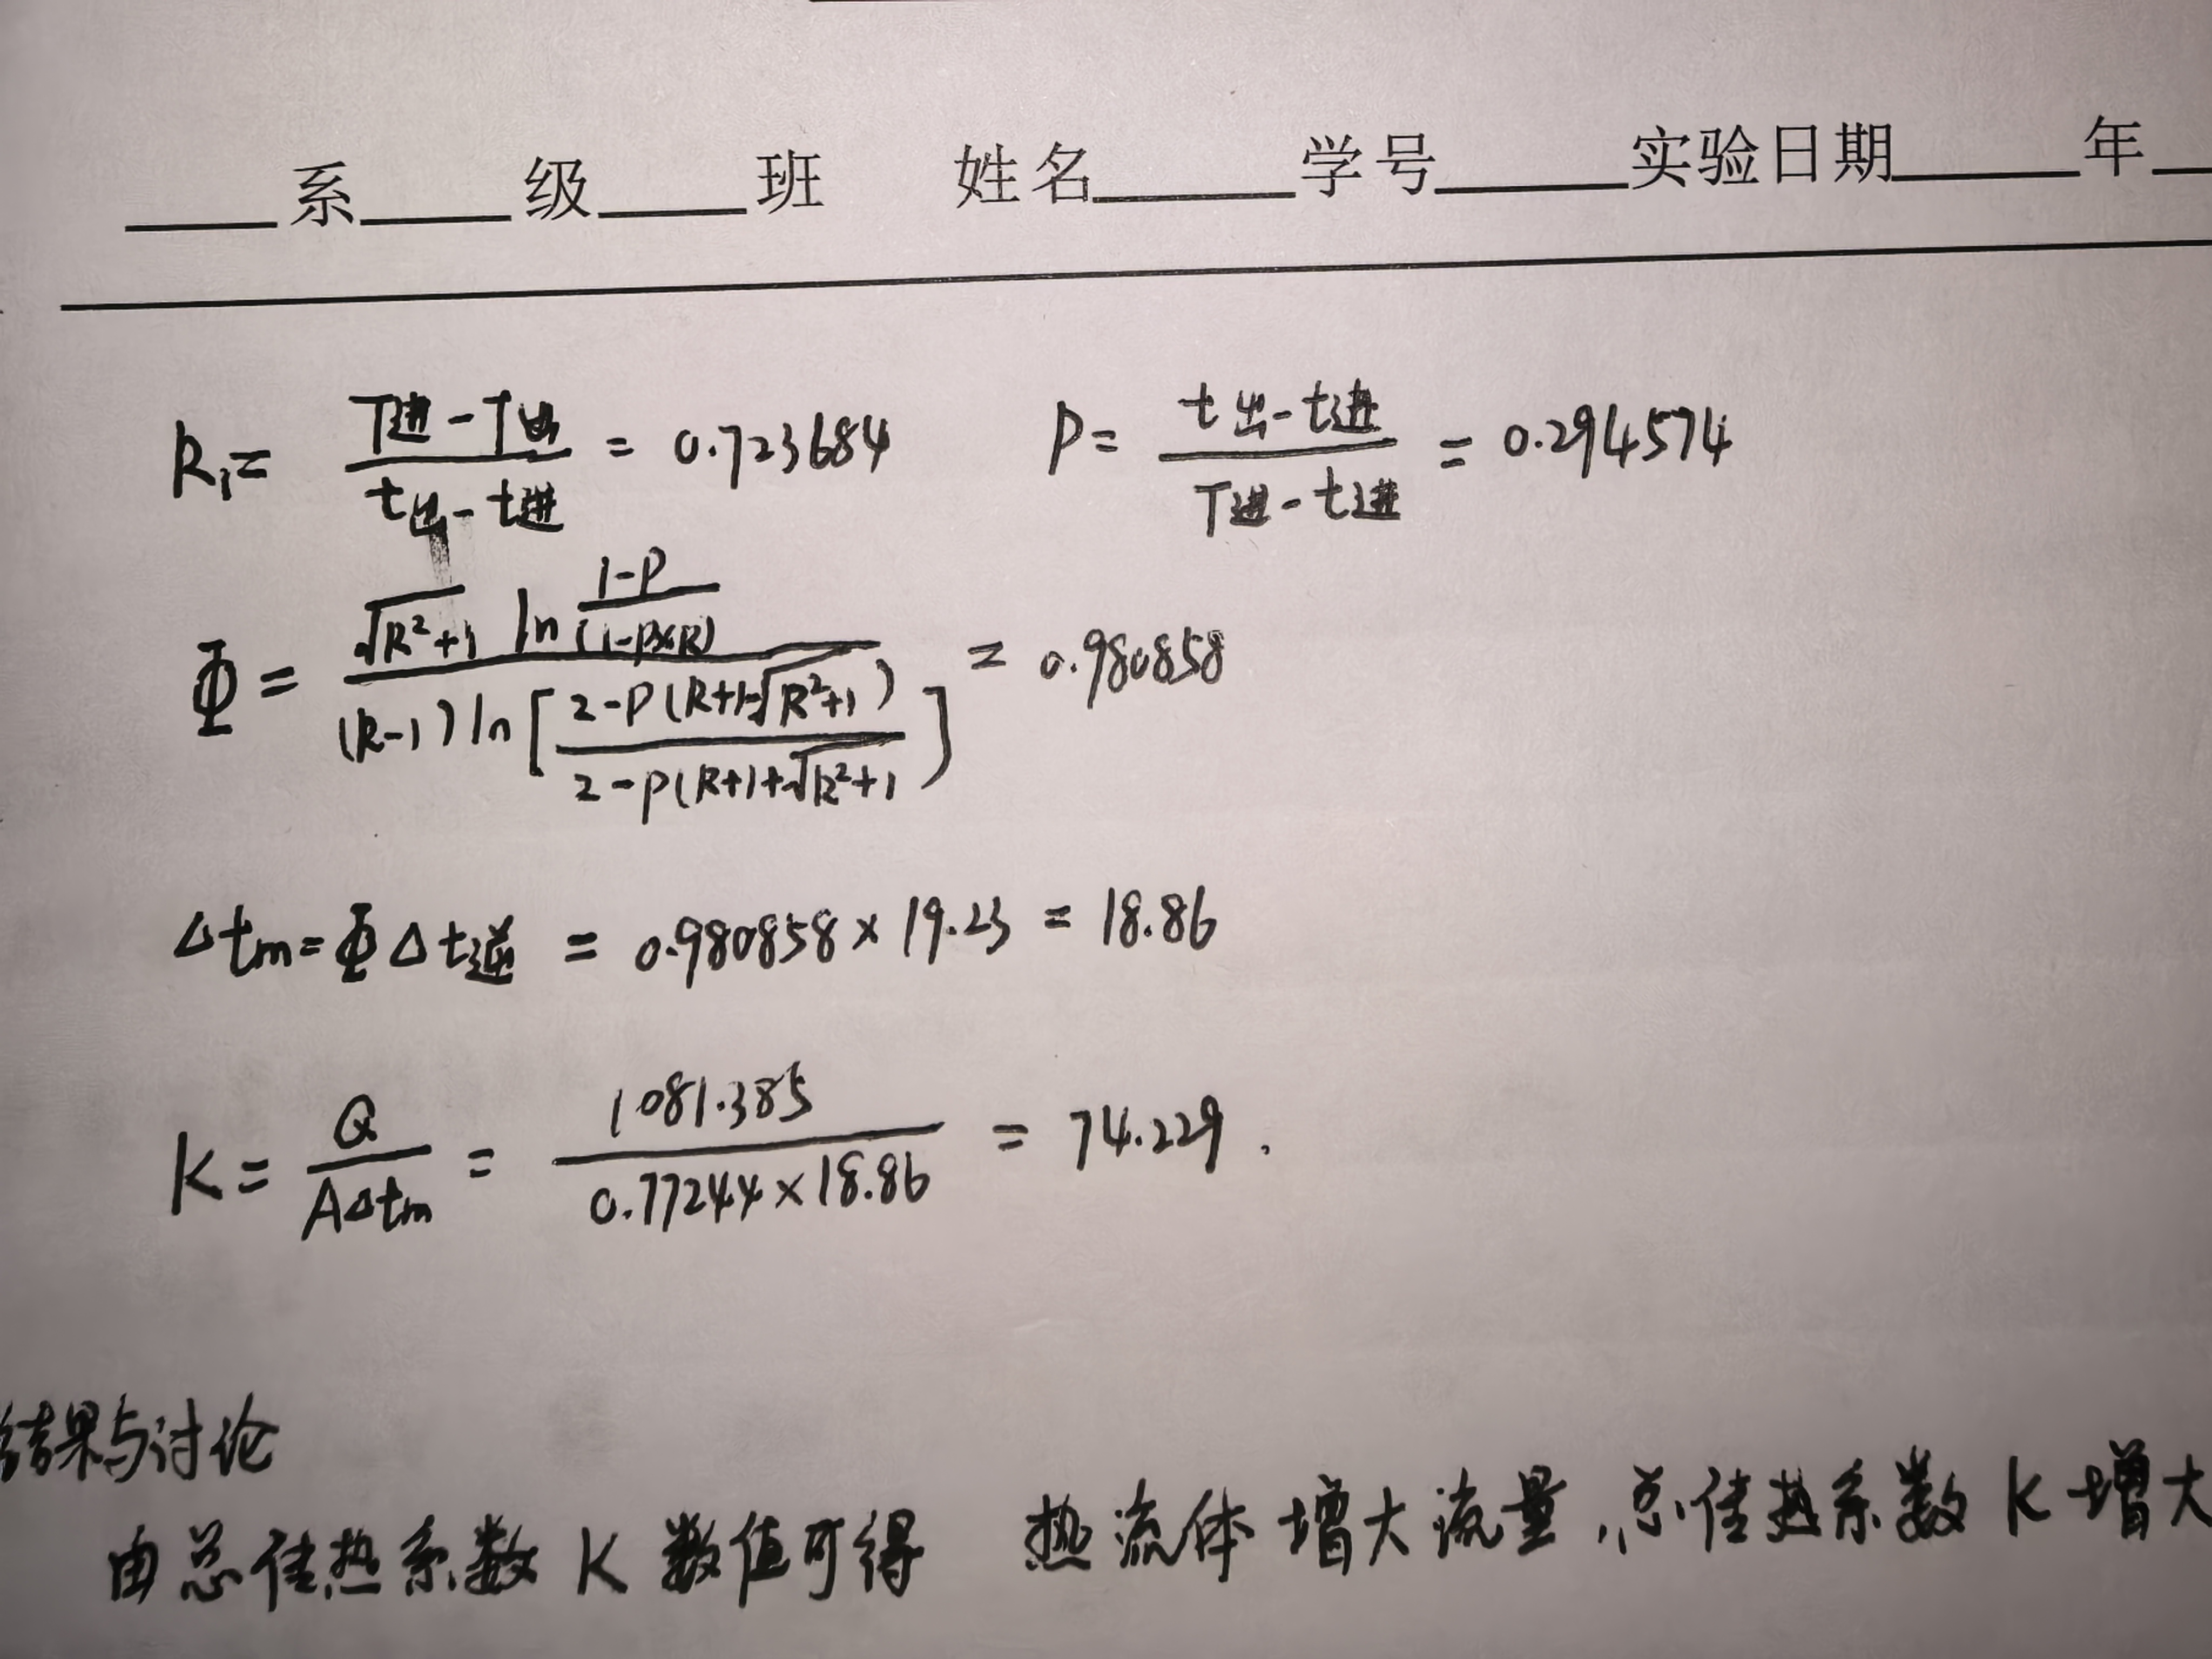 ____系____级____班 姓名______学号______实验日期______年__
R₁= (T进-T出)/(t出-t进) = 0.723684 P= (t出-t进)/(T进-t进) = 0.294574
Φ= (√(R²+1) ln (1-P)/(1-P×R))/((R-1)ln[(2-P(R+1-√(R²+1)))/(2-P(R+1+√(R²+1))]) = 0.980858
Δtm=ΦΔt逆 = 0.980858×19.23 = 18.86
K= Q/(AΔtm) = 1081.385/(0.77244×18.86) = 74.229.
结果与讨论
由总传热系数 K 数值可得 热流体增大流量,总传热系数 K 增大